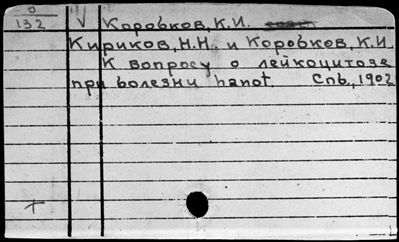 0
132 V Коровков, К.И.
Кириков, Н.Н. и Коровков, К.И.
К вопросу о лейкоцитозе
при болезни hanot. Спб., 1902
+